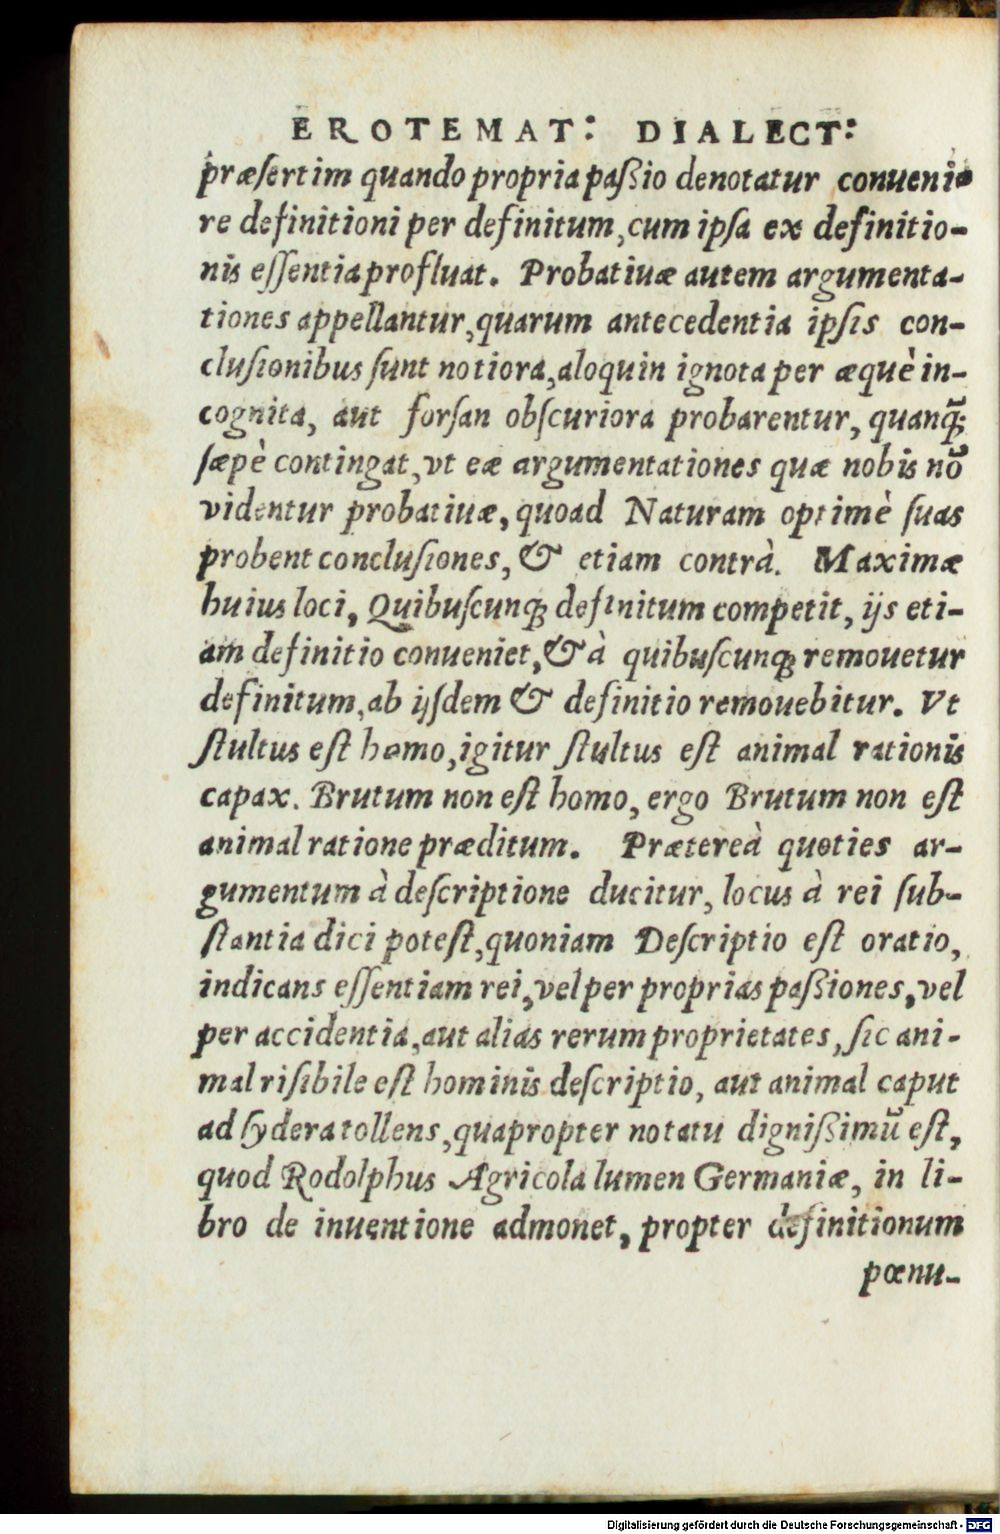 EROTEMAT: DIALECT:
præſertim quando propria paßio denotatur conueni-
re definitioni per definitum, cum ipſa ex definitio-
nis eſſentia profluat. Probatiuæ autem argumenta-
tiones appellantur, quarum antecedentia ipſis con-
cluſionibus ſunt notiora, aloquin ignota per æquè in-
cognita, aut forſan obſcuriora probarentur, quanq̃;
ſæpè contingat, vt eæ argumentationes quæ nobis nõ
videntur probatiuæ, quoad Naturam optimè ſuas
probent concluſiones, & etiam contrà. Maximæ
huius loci, Quibuſcunq; definitum competit, ijs eti-
am definitio conueniet, & à quibuſcunq; remouetur
definitum, ab ijſdem & definitio remouebitur. Vt
ſtultus eſt homo, igitur ſtultus eſt animal rationis
capax. Brutum non eſt homo, ergo Brutum non eſt
animal ratione præditum. Prætereà quoties ar-
gumentum à deſcriptione ducitur, locus à rei ſub-
ſtantia dici poteſt, quoniam Deſcriptio eſt oratio,
indicans eſſentiam rei, vel per proprias paßiones, vel
per accidentia, aut alias rerum proprietates, ſic ani-
mal riſibile eſt hominis deſcriptio, aut animal caput
ad ſydera tollens, quapropter notatu dignißimũ eſt,
quod Rodolphus Agricola lumen Germaniæ, in li-
bro de inuentione admonet, propter definitionum
pœnu-
Digitalisierung gefördert durch die Deutsche Forschungsgemeinschaft - DFG